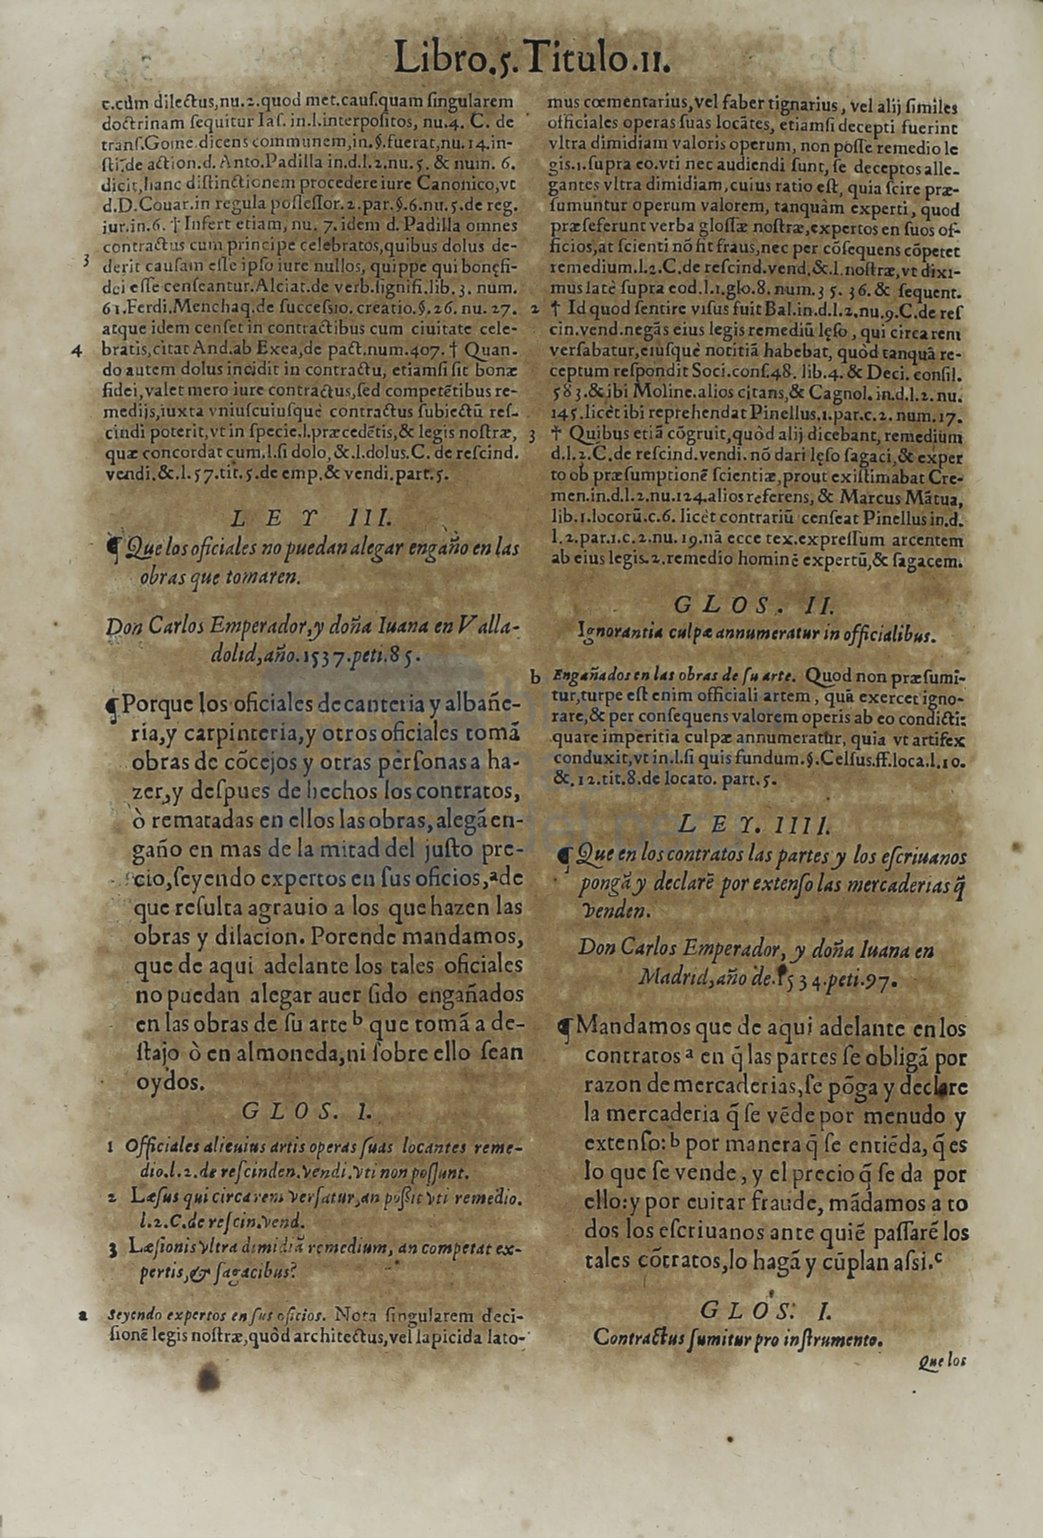 Libro.5.Titulo.11.
c.cùm dilectus,nu.2.quod met.cauſ.quam ſingularem
doctrinam ſequitur Iaſ. in.l.interpoſitos, nu.4. C. de
tranſ.Gome.dicens communem,in.§.fuerat,nu.14.in-
ſti.de action.d. Anto.Padilla in.d.l.2.nu.5. & num. 6.
dicit,hanc diſtinctionem procedere iure Canonico,vt
d.D.Couar.in regula poſſeſſor.2.par.§.6.nu.5.de reg.
iur.in.6. † Infert etiam, nu. 7. idem d. Padilla omnes
contractus cum principe celebratos,quibus dolus de-
3 derit cauſam eſſe ipſo iure nullos, quippe qui bonęfi-
dei eſſe cenſeantur.Alciat.de verb.ſignifi.lib. 3. num.
61.Ferdi.Menchaq.de ſucceſsio. creatio.§.26. nu. 27.
atque idem cenſet in contractibus cum ciuitate cele-
4 bratis,citat And.ab Exea,de pact.num.407. † Quan-
do autem dolus incidit in contractu, etiamſi ſit bonæ
fidei, valet mero iure contractus,ſed competẽtibus re-
medijs,iuxta vniuſcuiuſquè contractus ſubiectũ reſ-
cindi poterit,vt in ſpecie.l.præcedẽtis,& legis noſtræ,
quæ concordat cum.l.ſi dolo,&.l.dolus.C. de reſcind.
vendi.&.l.57.tit.5.de emp.& vendi.part.5.
L E Y III.
¶ Que los oficiales no puedan alegar engaño en las
obras que tomaren.
Don Carlos Emperador,y doña Iuana en Valla-
dolid,año.1537.peti.85.
¶Porque los oficiales de canteria y albañe-
ria,y carpinteria,y otros oficiales tomã
obras de cõcejos y otras perſonas a ha-
zer,y deſpues de hechos los contratos,
ò rematadas en ellos las obras, alegã en-
gaño en mas de la mitad del juſto pre-
cio,ſeyendo expertos en ſus oficios,ᵃ de
que reſulta agrauio a los que hazen las
obras y dilacion. Porende mandamos,
que de aqui adelante los tales oficiales
no puedan alegar auer ſido engañados
en las obras de ſu arte ᵇ que tomã a de-
ſtajo ò en almoneda,ni ſobre ello ſean
oydos.
G L O S. I.
1 Officiales alicuius artis operas ſuas locantes reme-
dio.l.2.de reſcinden.vendi.vti non poſſunt.
2 Læſus qui circa rem verſatur,an poſsit vti remedio.
l.2.C.de reſcin.vend.
3 Læſionis vltra dimidiã remedium, an competat ex-
pertis,& ſagacibus?
a Seyendo expertos en ſus oficios. Nota ſingularem deci-
ſionẽ legis noſtræ,quòd architectus,vel lapicida lato-
mus cœmentarius,vel faber tignarius, vel alij ſimiles
officiales operas ſuas locãtes, etiamſi decepti fuerint
vltra dimidiam valoris operum, non poſſe remedio le
gis.1.ſupra eo.vti nec audiendi ſunt, ſe deceptos alle-
gantes vltra dimidiam,cuius ratio eſt, quia ſcire præ-
ſumuntur operum valorem, tanquàm experti, quod
præſeferunt verba gloſſæ noſtræ,expertos en ſuos of-
ficios,at ſcienti nõ fit fraus,nec per cõſequens cõpetet
remedium.l.2.C.de reſcind.vend.&.l.noſtræ,vt dixi-
mus latè ſupra eod.l.1.glo.8. num.35. 36.& ſequent.
2 † Id quod ſentire viſus fuit Bal.in.d.l.2.nu.9.C.de reſ
cin.vend.negãs eius legis remediũ lęſo, qui circa rem
verſabatur,eiuſquè notitiã habebat, quòd tanquã re-
ceptum reſpondit Soci.conſ.48. lib.4. & Deci. conſil.
583.& ibi Moline.alios citans,& Cagnol.in.d.l.2.nu.
145.licèt ibi reprehendat Pinellus.1.par.c.2. num.17.
3 † Quibus etiã cõgruit,quòd alij dicebant, remedium
d.l.2.C.de reſcind.vendi. nõ dari lęſo ſagaci,& exper
to ob præſumptionẽ ſcientiæ,prout exiſtimabat Cre-
men.in.d.l.2.nu.124.alios referens, & Marcus Mãtua,
lib.1.locorũ.c.6. licèt contrariũ cenſeat Pinellus in.d.
l.2.par.1.c.2.nu.19.nã ecce tex.expreſſum arcentem
ab eius legis.2.remedio hominẽ expertũ,& ſagacem.
G L O S. II.
Ignorantia culpæ annumeratur in officialibus.
b Engañados en las obras de ſu arte. Quod non præſumi-
tur,turpe eſt enim officiali artem, quã exercet igno-
rare,& per conſequens valorem operis ab eo condicti:
quare imperitia culpæ annumeratur, quia vt artifex
conduxit,vt in.l.ſi quis fundum.§.Celſus.ff.loca.l.10.
&.12.tit.8.de locato. part.5.
L E Y. IIII.
¶ Que en los contratos las partes y los eſcriuanos
pongã y declarẽ por extenſo las mercaderias q̃
venden.
Don Carlos Emperador, y doña Iuana en
Madrid,año de.1534.peti.97.
¶Mandamos que de aqui adelante en los
contratos ᵃ en q̃ las partes ſe obligã por
razon de mercaderias,ſe põga y declare
la mercaderia q̃ ſe vẽde por menudo y
extenſo: ᵇ por manera q̃ ſe entiẽda, q̃ es
lo que ſe vende, y el precio q̃ ſe da por
ello:y por euitar fraude, mãdamos a to
dos los eſcriuanos ante quiẽ paſſarẽ los
tales cõtratos,lo hagã y cũplan aſsi.ᶜ
G L O S. I.
Contractus ſumitur pro inſtrumento.
Que los